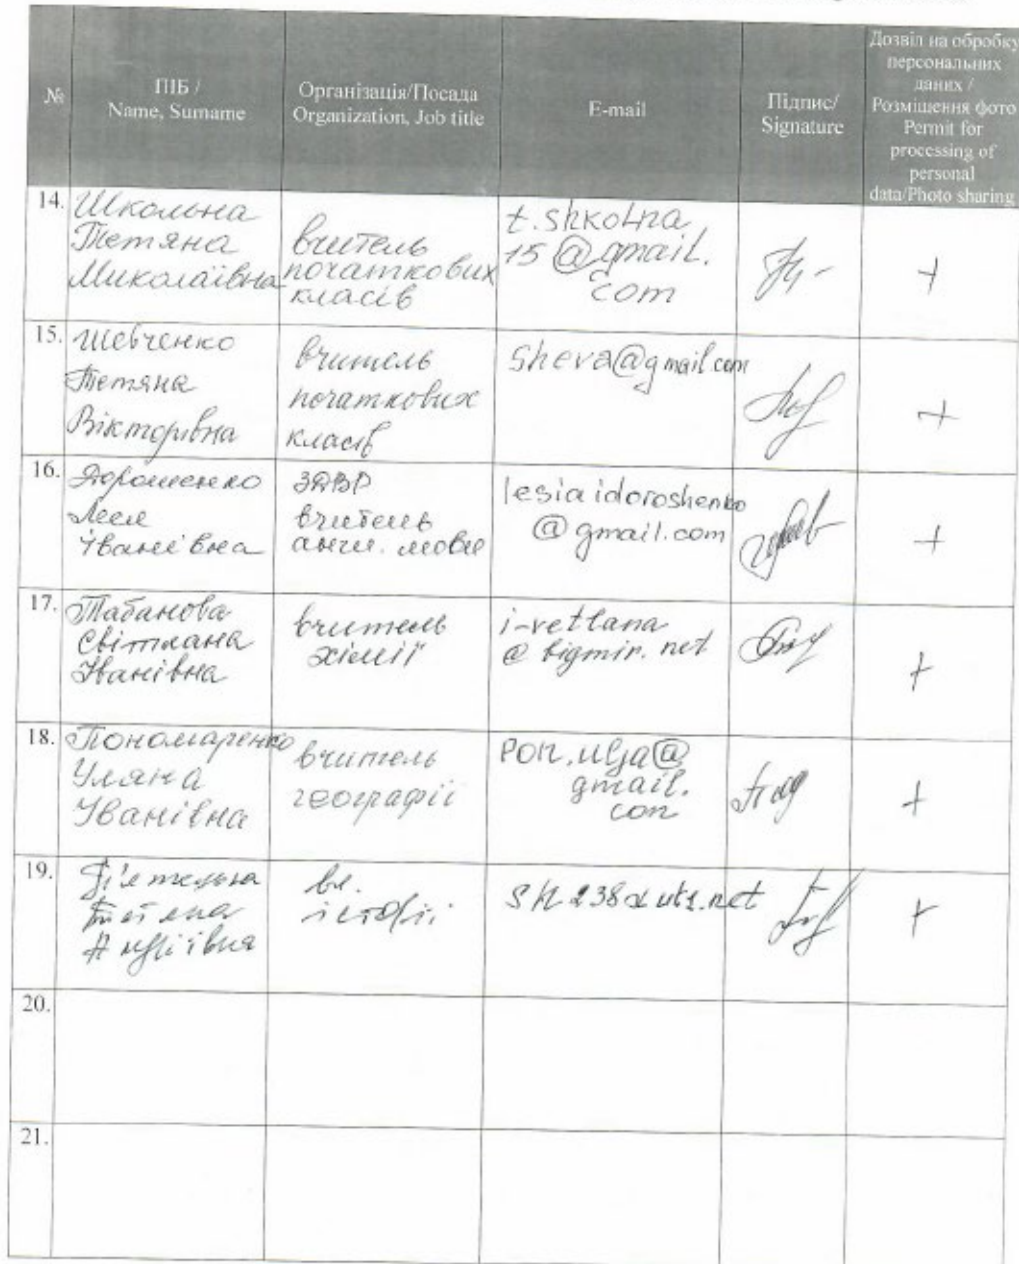 №
ПІБ /
Name, Surname
Організація/Посада
Organization, Job title
E-mail
Підпис/
Signature
Дозвіл на обробку
персональних
даних /
Розміщення фото
Permit for
processing of
personal
data/Photo sharing
14.
Школьна
Тетяна
Миколаївна
вчитель
початкових
класів
t.shkolna
15@gmail.
com
+
15.
Шевченко
Тетяна
Вікторівна
вчитель
початкових
класів
sheva@gmail.com
+
16.
Дорошенко
Леся
Іванівна
ЗДВР
вчитель
англ. мови
lesiaidoroshenko
@gmail.com
+
17.
Табанова
Світлана
Іванівна
вчитель
хімії
i-vetlana
@bigmir.net
+
18.
Пономаренко
Уляна
Іванівна
вчитель
географії
pon.ulja@
gmail.
com
+
19.
Андріївна
вч.
історії
+
20.
21.